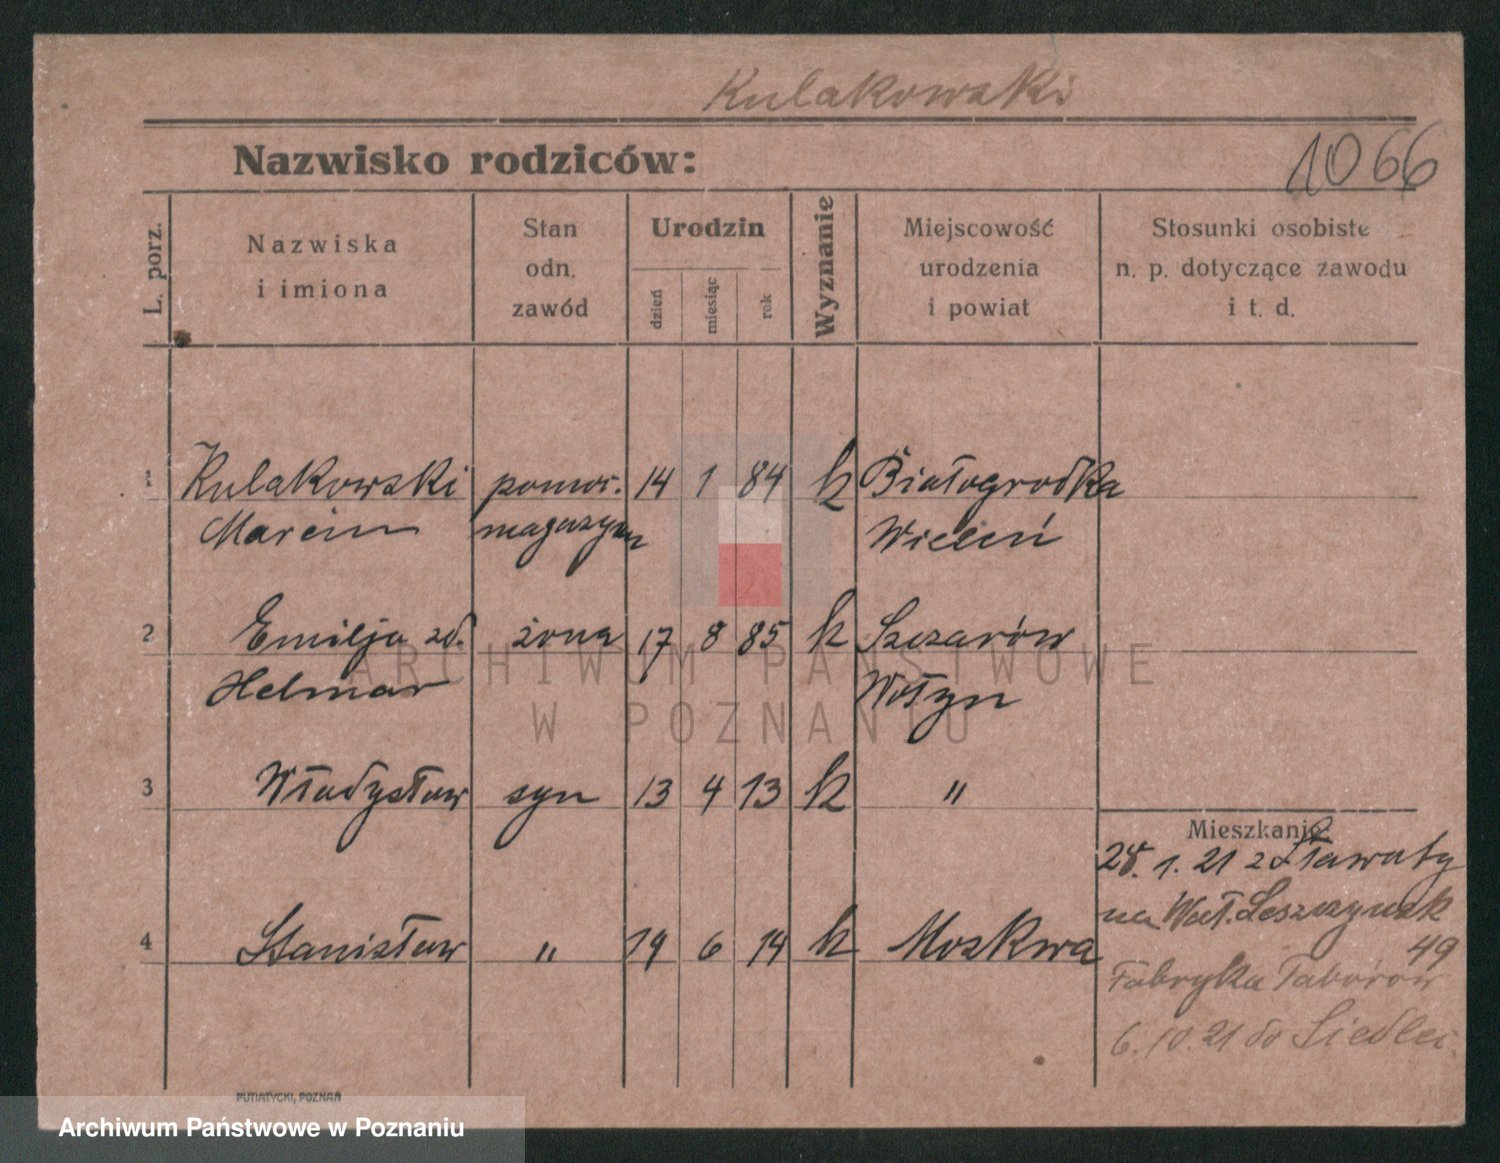 Kulakowski
Nazwisko rodziców:
1066
L. porz.
Nazwiska
i imiona
Stan
odn.
zawód
Urodzin
dzień
miesiąc
rok
Wyznanie
Miejscowość
urodzenia
i powiat
Stosunki osobiste
n. p. dotyczące zawodu
i t. d.
1 Kulakowski pomoc. 14 1 84 k Białogrodka
Marcin magazyn Wieleń
2 Emilja zd. żona 17 8 85 k Szczarów
Helmar Wołyn
3 Władysław syn 13 4 13 k "
4 Stanisław " 19 6 14 k Moskwa
Mieszkanie:
28. 1. 21 z Sławuty
na Wał. Leszczynsk
49
Fabryka Taborów
6.10.21 do Siedlec
ARCHIWUM PAŃSTWOWE
W POZNANIU
PUTIATYCKI, POZNAŃ
Archiwum Państwowe w Poznaniu